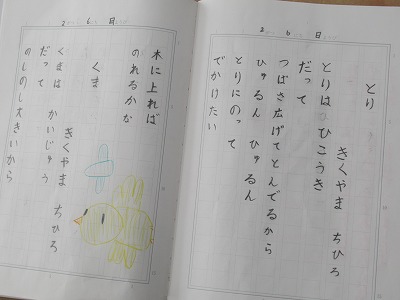 2 6 日
とり
きくやま ちひろ
とりは ひこうき
だって
つばさ広げてとんでるから
ひゅるん ひゅるん
とりにのって
でかけたい
2 6 日
木に上れば
のれるかな
くま
きくやま ちひろ
くまは かいじゅう
だって
のしのし大きいから